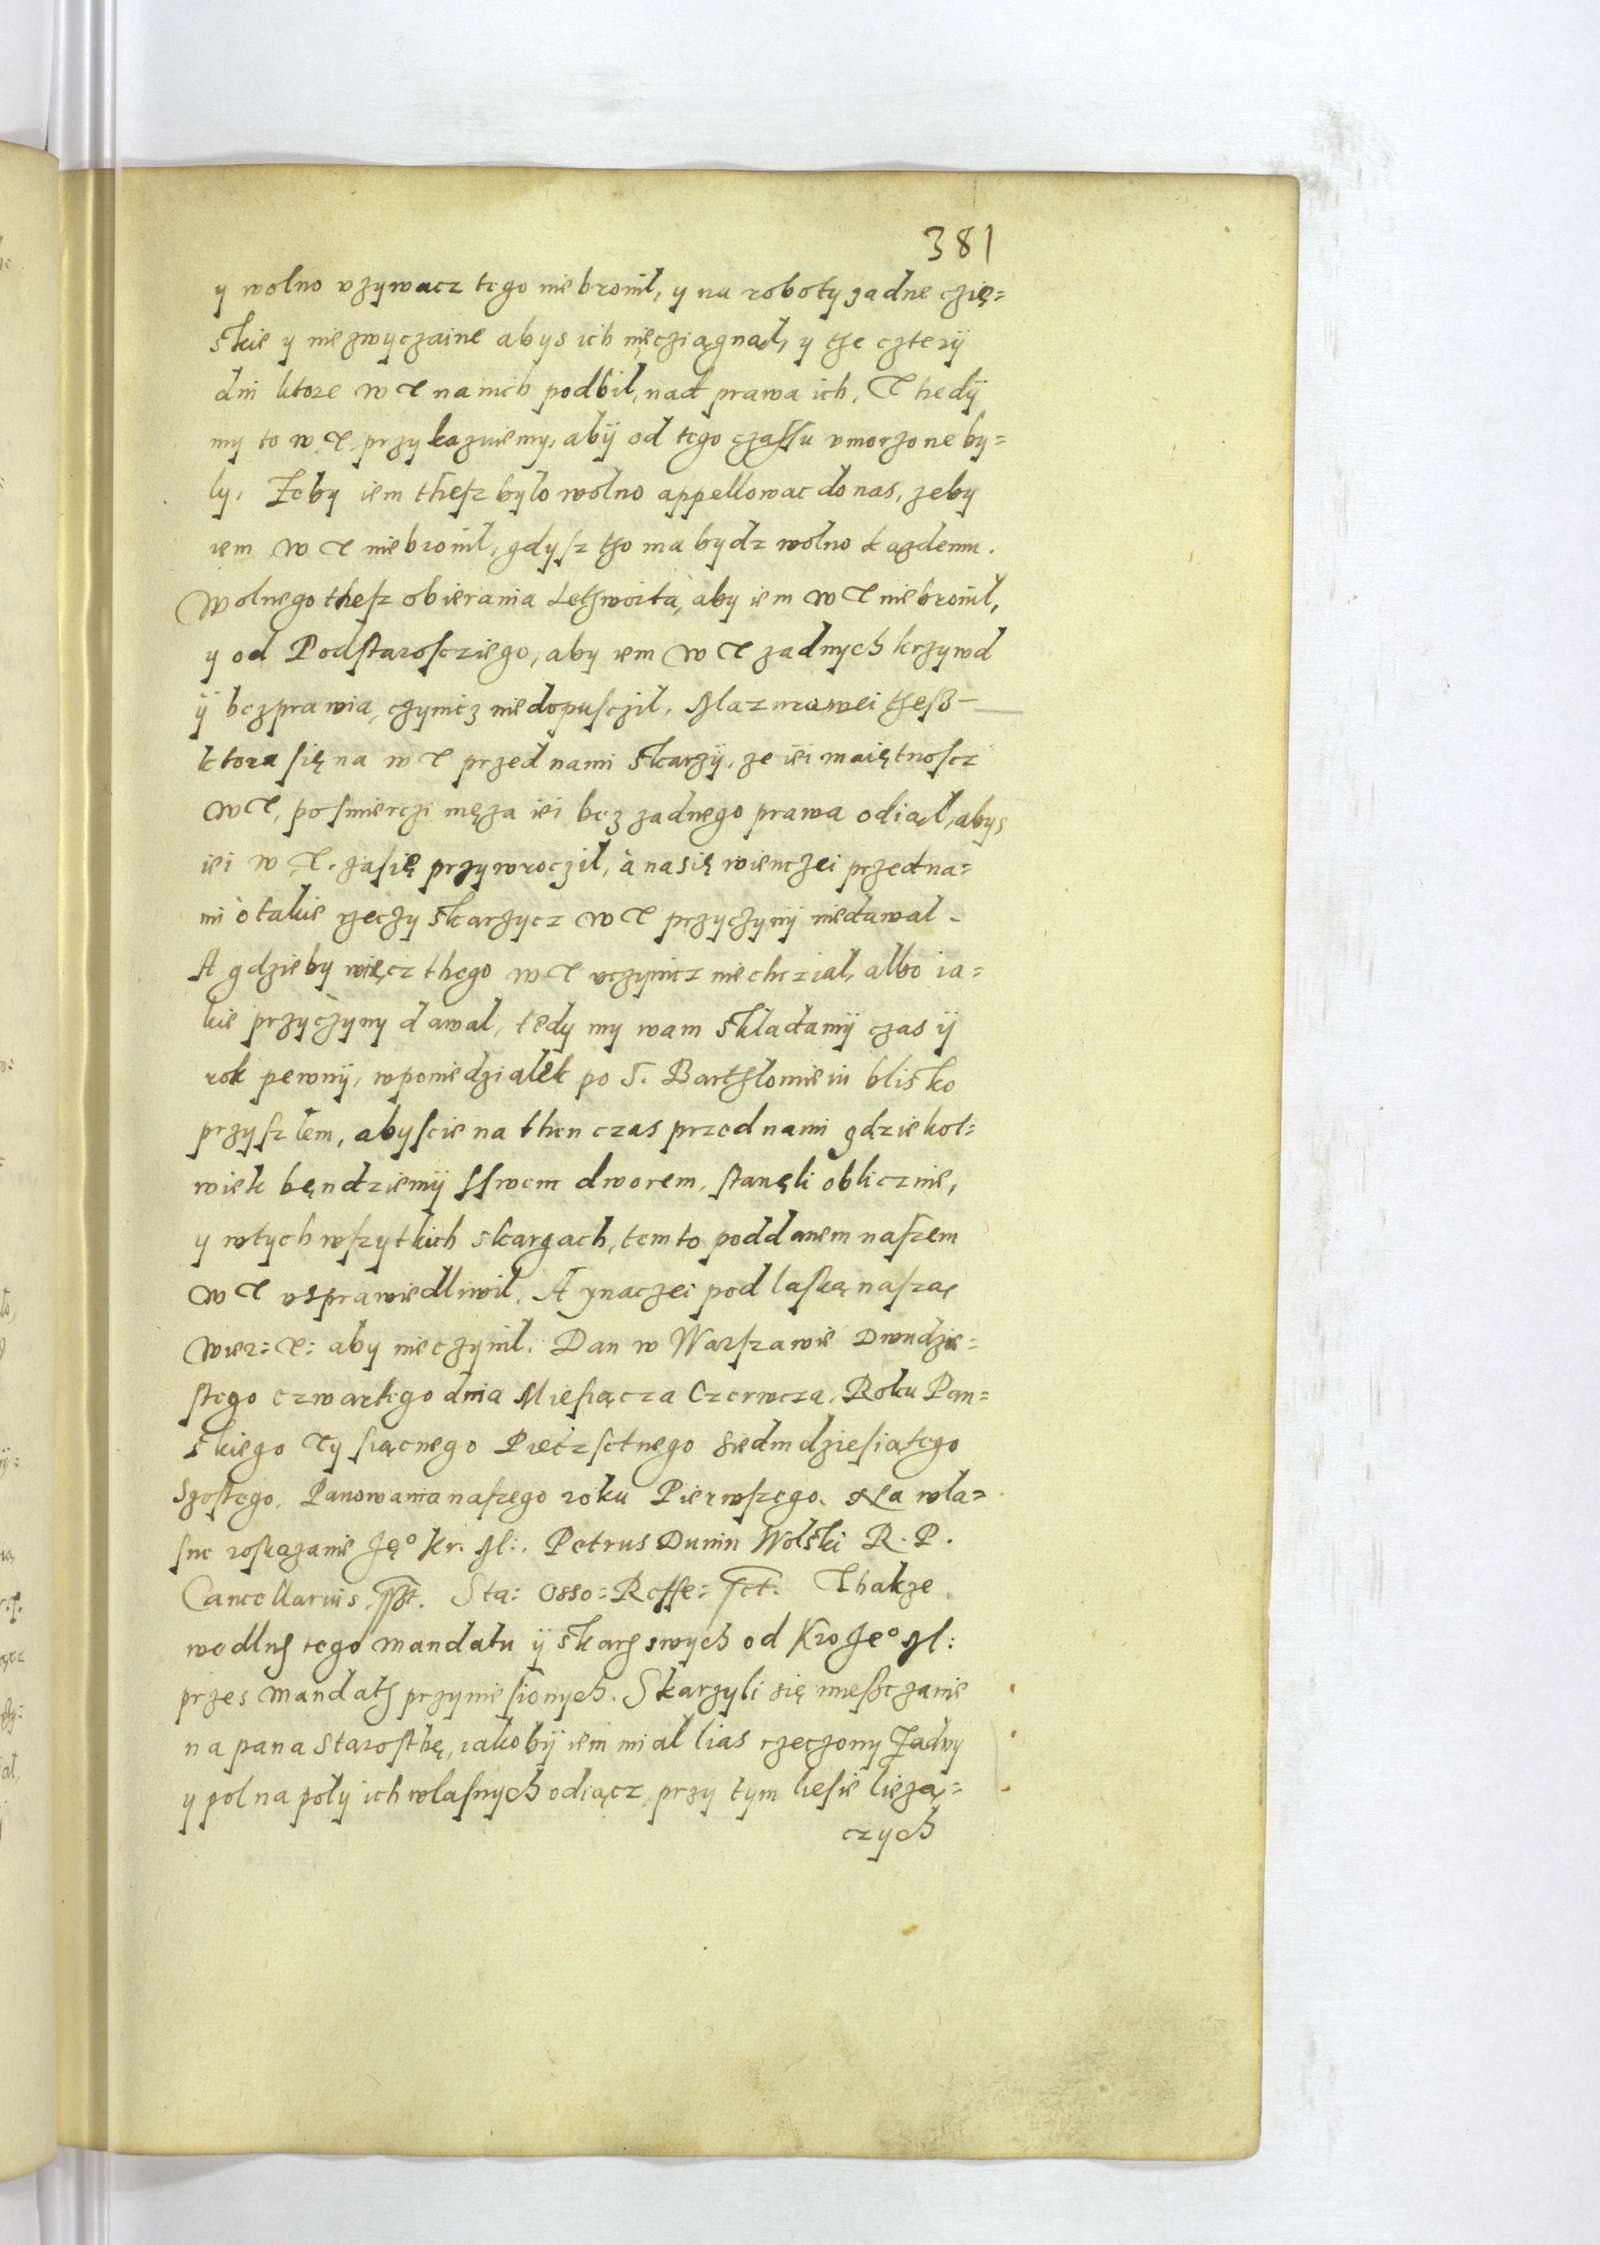 381
y wolno vzywacz tego niebronil, y na roboty zadne czię=
skie y niezwyczaine abys ich nięcziągnął, y the czterÿ
dni ktore w T na nich podbil, nad prawa ich, Thedÿ
my to w T. przykazuiemy, abÿ od tego czassu vmorzone by=
ly. Zeby iem thesz bylo wolno appellowac do nas, zeby
iem W T niebronil, gdysz tho ma bydz wolno każdemu.
Wolnego thesz obierania Lethworta, aby iem W T niebronil,
y od Podstarosciego, aby iem W T zadnych krzywd
ÿ bezprawia, czynicz niedopusczil. Mazurowei theß
ktora się na w T przed nami skarzÿ, ze iei maiętnoscz
W T, posmierczi męza iei bez zadnego prawa odiąl, abys
iei w T. zasię przywroczil, à nasię wienczei przedna=
mi ò takie rzeczy skarzycz W T przyczynÿ niedawal.
A gdzieby więcz thego W T vczynicz niechczial, albo ia=
kie przyczyny dawal, tedy my wam składamÿ czas ÿ
rok pewnÿ, wponiedzialek po S. Barthłomieiu blisko
przyszlem, abyscie na then czas przed nami gdziekol=
wiek bęndziemÿ sswem dworem, stanęli obliczniе,
y wtych wszytkich skargach, temto poddanem naszem
W T vsprawiedliwil, A ynaczei pod laską naszą
Wier: T: aby nieczynil. Dan w Warszawie Dwudzie=
stego czwartego dnia Miesiącza Czerwcza. Roku Pan=
skiego Tysiącnego Pięczsetnego Siedmdziesiątego
Szostego. Panowania naszego roku Pierwszego. Na wla=
sne roskazanie Ję° Kr. M:. Petrus Dunin Wolski R. P.
Cancellarius sst. Sta: Osso: Reffe: sct. Thakze
wedlug tego mandatu ÿ skarg swych od Kro Je° M:
przes mandath przyniesionych. Skarzyli się miesczanie
na pana Starostę, iakobÿ iem mial lias rzeczony Zadvy
y pol na poly ich wlasnych odiącz, przy tym liesie lieżą=
czych